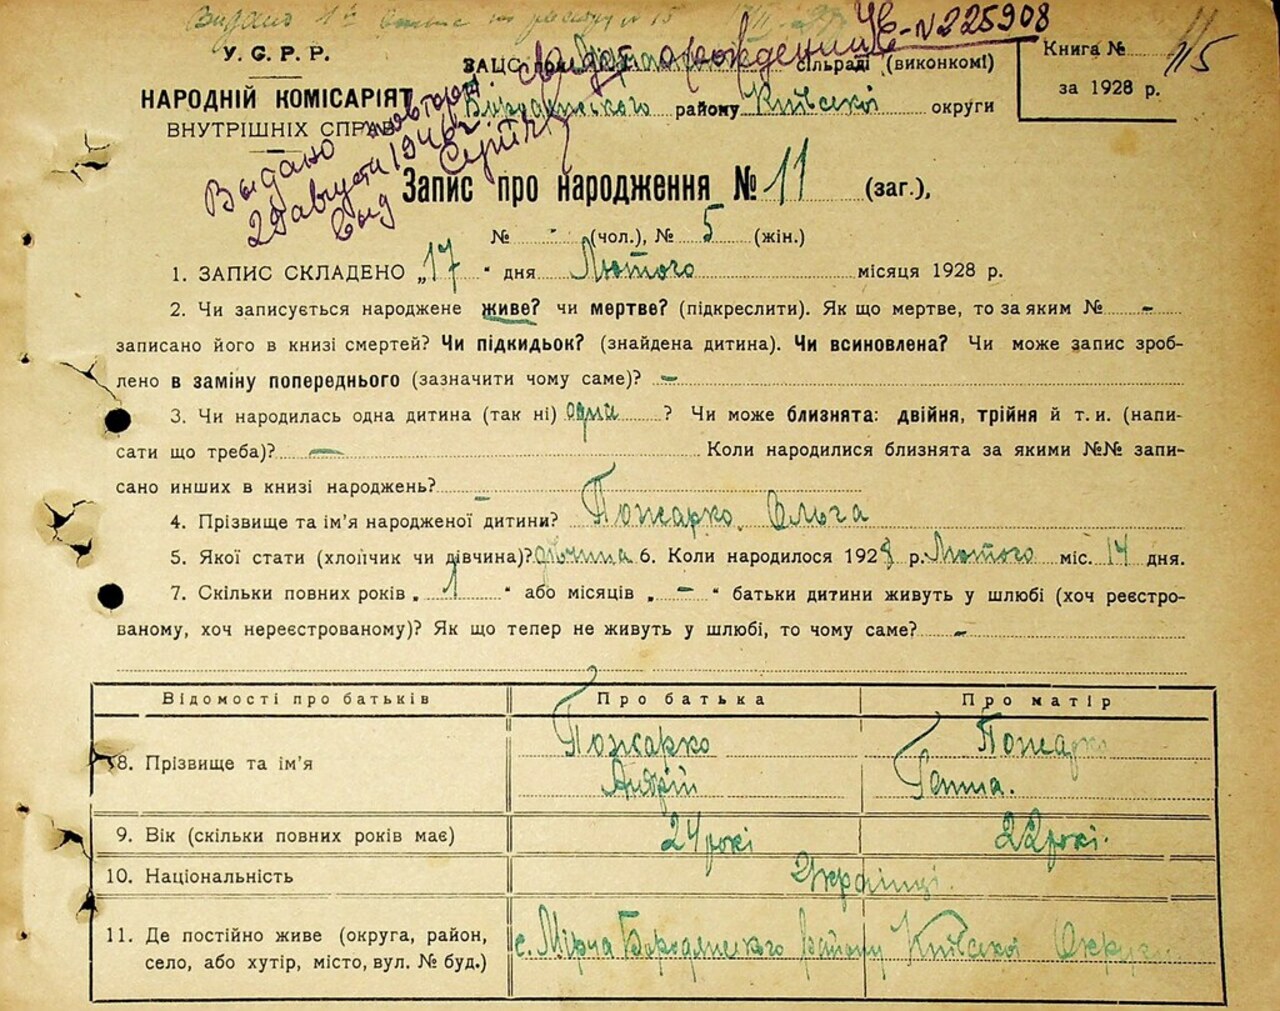 Видано 1
ЧЕ-№225908
У. С. Р. Р.
НАРОДНІЙ КОМІСАРІЯТ
ВНУТРІШНІХ СПРАВ
ЗАЦС при сільраді (виконкомі)
Бородянського району Київської округи
Книга № 115
за 1928 р.
Выдано повторн. свид о рождении
29 августа 1946 г
Запис про народження № 11 (заг.),
№ - (чол.), № 5 (жін.)
1. ЗАПИС СКЛАДЕНО „17" дня Лютого місяця 1928 р.
2. Чи записується народжене живе? чи мертве? (підкреслити). Як що мертве, то за яким № -
записано його в книзі смертей? Чи підкидьок? (знайдена дитина). Чи всиновлена? Чи може запис зроб-
лено в заміну попереднього (зазначити чому саме)? -
3. Чи народилась одна дитина (так ні) одна ? Чи може близнята: двійня, трійня й т. и. (напи-
сати що треба)? - Коли народилися близнята за якими №№ запи-
сано инших в книзі народжень? -
4. Прізвище та ім'я народженої дитини? Пожарко Ольга
5. Якої стати (хлопчик чи дівчина)? дівчина 6. Коли народилось 1928 р. Лютого міс. 14 дня.
7. Скільки повних років „ 1 " або місяців „ - " батьки дитини живуть у шлюбі (хоч реєстро-
ваному, хоч нереєстрованому)? Як що тепер не живуть у шлюбі, то чому саме? -
Відомості про батьків Про батька Про матір
8. Прізвище та ім'я Пожарко Андрій Пожарко Ганна.
9. Вік (скільки повних років має) 24 рокі 22 рокі.
10. Національність Українці.
11. Де постійно живе (округа, район,
село, або хутір, місто, вул. № буд.) с. Мірча Бородянського району Київської Округи